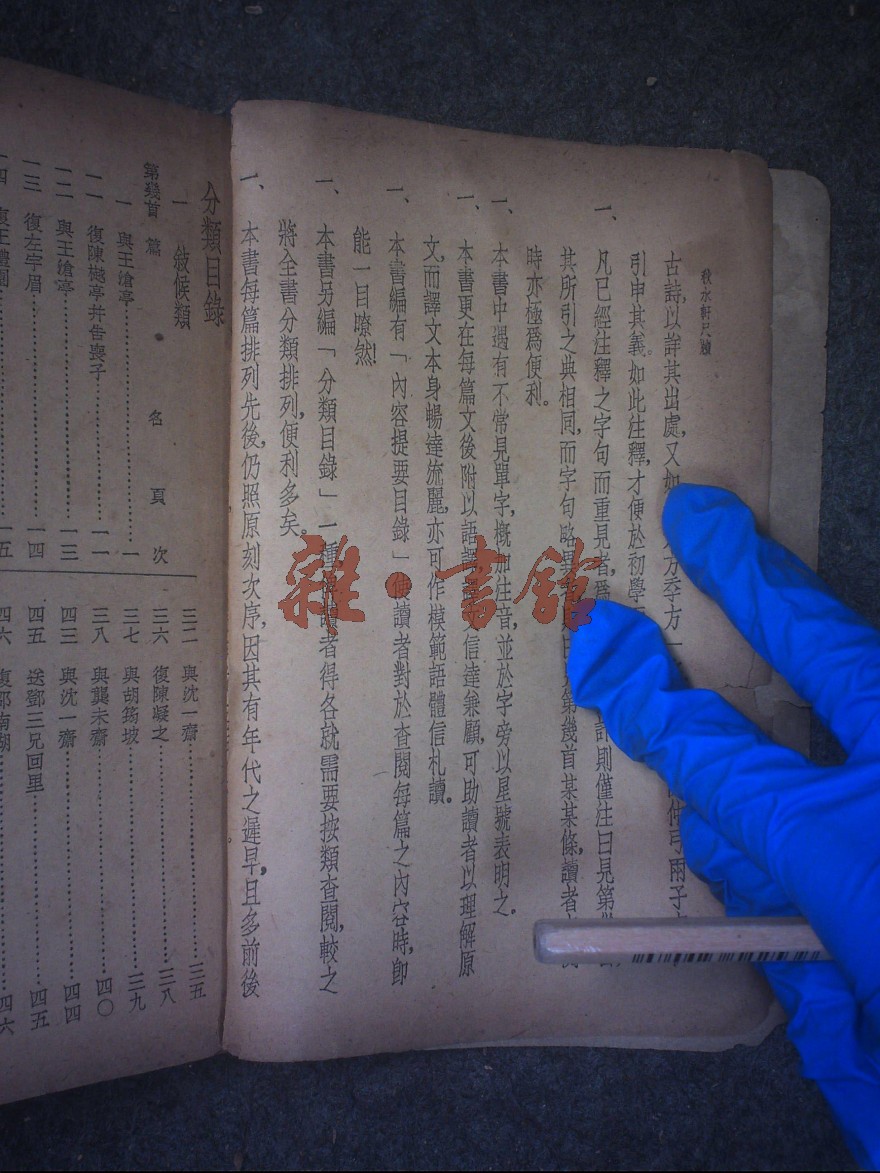 秋水軒尺牘
古詩，以詳其出處，又如 方季方一
引申其義。如此注釋，才便於初學
凡已經注釋之字句而重見者，則僅注曰見第
其所引之典相同，而字句略異 第幾首某某條，讀者
時亦極爲便利。
一、本書中遇有不常見單字，概加注音，並於字旁以星號表明之。
一、本書更在每篇文後附以語譯，信達兼顧，可助讀者以理解原
文，而譯文本身暢達流麗，亦可作模範語體信札讀。
一、本書編有「內容提要目錄」使讀者對於查閱每篇之內容時，卽
能一目瞭然！
一、本書另編「分類目錄」一種，者得各就需要按類查閱，較之
將全書分類排列，便利多矣。
一、本書每篇排列先後，仍照原刻次序，因其有年代之遲早，且多前後
雜·書館
分類目錄
一 敍候類
第幾首 篇 名 頁 次
一 與王滄亭……一
一一 復陳樾亭幷告喪子……一一
一二 與王滄亭……一三
一三 復左宇眉……一四
一四 復王禮圃……一五
三二 與沈一齋……三五
三六 復陳凝之……三八
三七 與胡筠坡……三九
三八 與龔未齋……四〇
四三 與沈一齋……四四
四五 送鄧三兄回里……四五
四六 復鄒南湖……四六